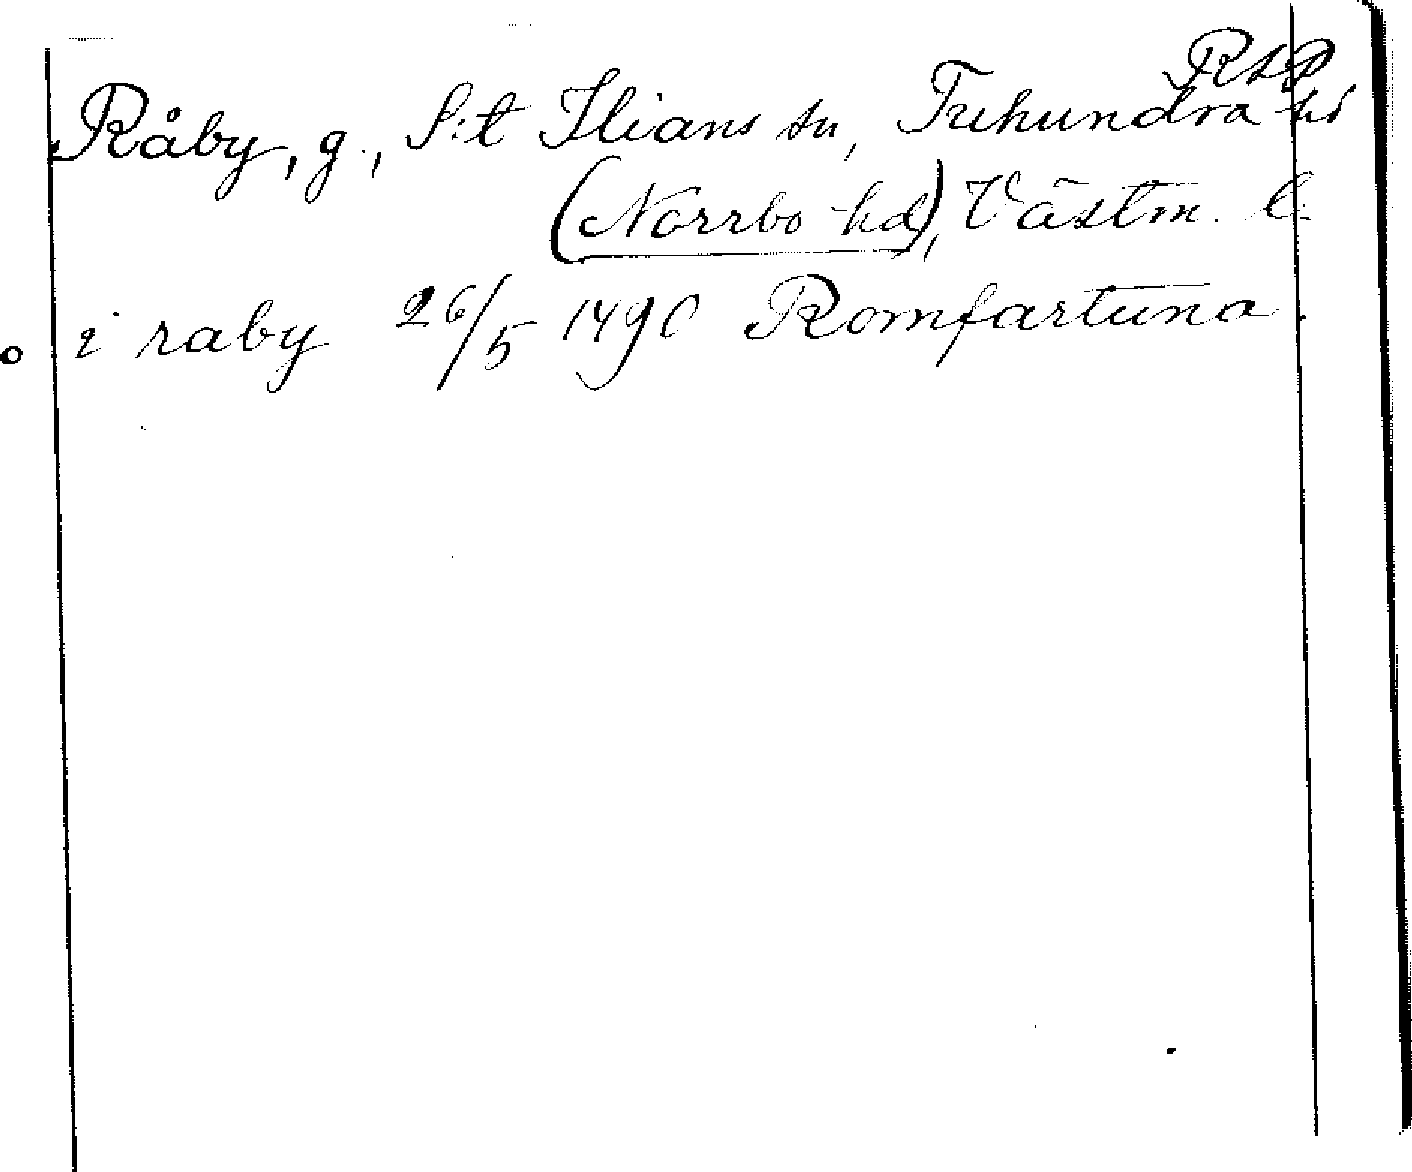 RAP
Råby, g., S:t Ilians sn, Tuhundra hd
(Norrbo hd), Västm. l.
i raby 26/5 1490 Romfartuna.